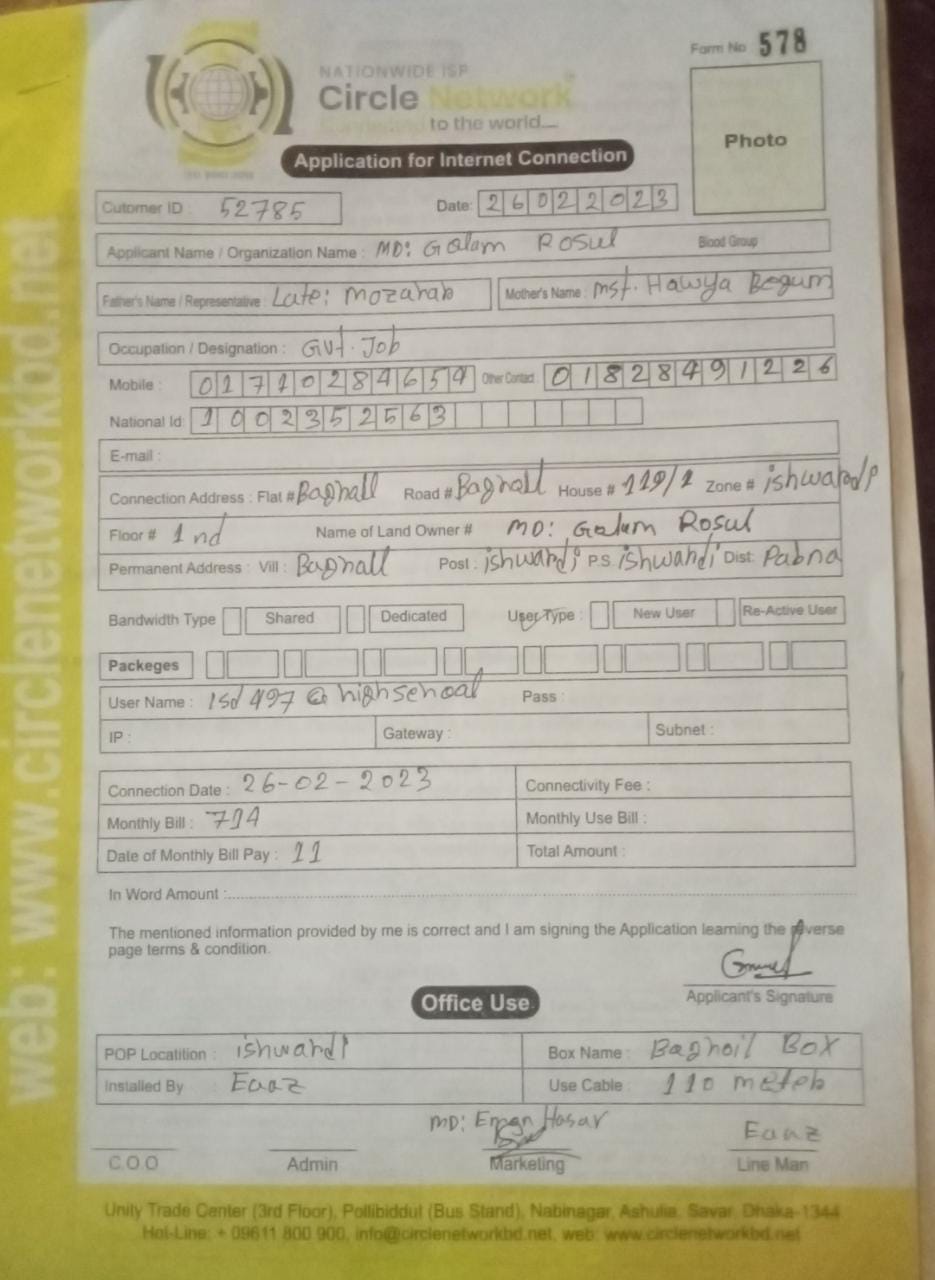 Form No 578
NATIONWIDE ISP
Circle Network
Connected to the world....
Photo
Application for Internet Connection
Cutomer ID : 52785 Date: 26022023
Applicant Name / Organization Name : MD: Galam Rosul Blood Group
Father's Name / Representative : Late: Mozahab Mother's Name : Mst. Hawya Begum
Occupation / Designation : Gvt. Job
Mobile : 01710284654 Other Contact : 01828491226
National Id: 1002352563
E-mail :
Connection Address : Flat # Baghall Road # Baghall House # 119/1 Zone # ishwardi
Floor # 1 nd Name of Land Owner # MD: Galam Rosul
Permanent Address : Vill : Baghall Post : ishwardi P.S. ishwardi Dist: Pabna
Bandwidth Type Shared Dedicated User Type : New User Re-Active User
Packeges
User Name : ISd 497 @ highschoal Pass :
IP : Gateway : Subnet :
Connection Date : 26-02-2023 Connectivity Fee :
Monthly Bill : 714 Monthly Use Bill :
Date of Monthly Bill Pay : 11 Total Amount :
In Word Amount :
The mentioned information provided by me is correct and I am signing the Application learning the adverse
page terms & condition.
Applicant's Signature
Office Use
POP Locatition : ishwardi Box Name : Baghoil Box
Installed By Eaaz Use Cable : 110 meteb
MD: Hasar Eaaz
C.O.O Admin Marketing Line Man
Unity Trade Center (3rd Floor), Pollibiddut (Bus Stand), Nabinagar, Ashulia, Savar, Dhaka-1344
Hot-Line: + 09611 800 900, info@circlenetworkbd.net, web: www.circlenetworkbd.net
web: www.circlenetworkbd.net